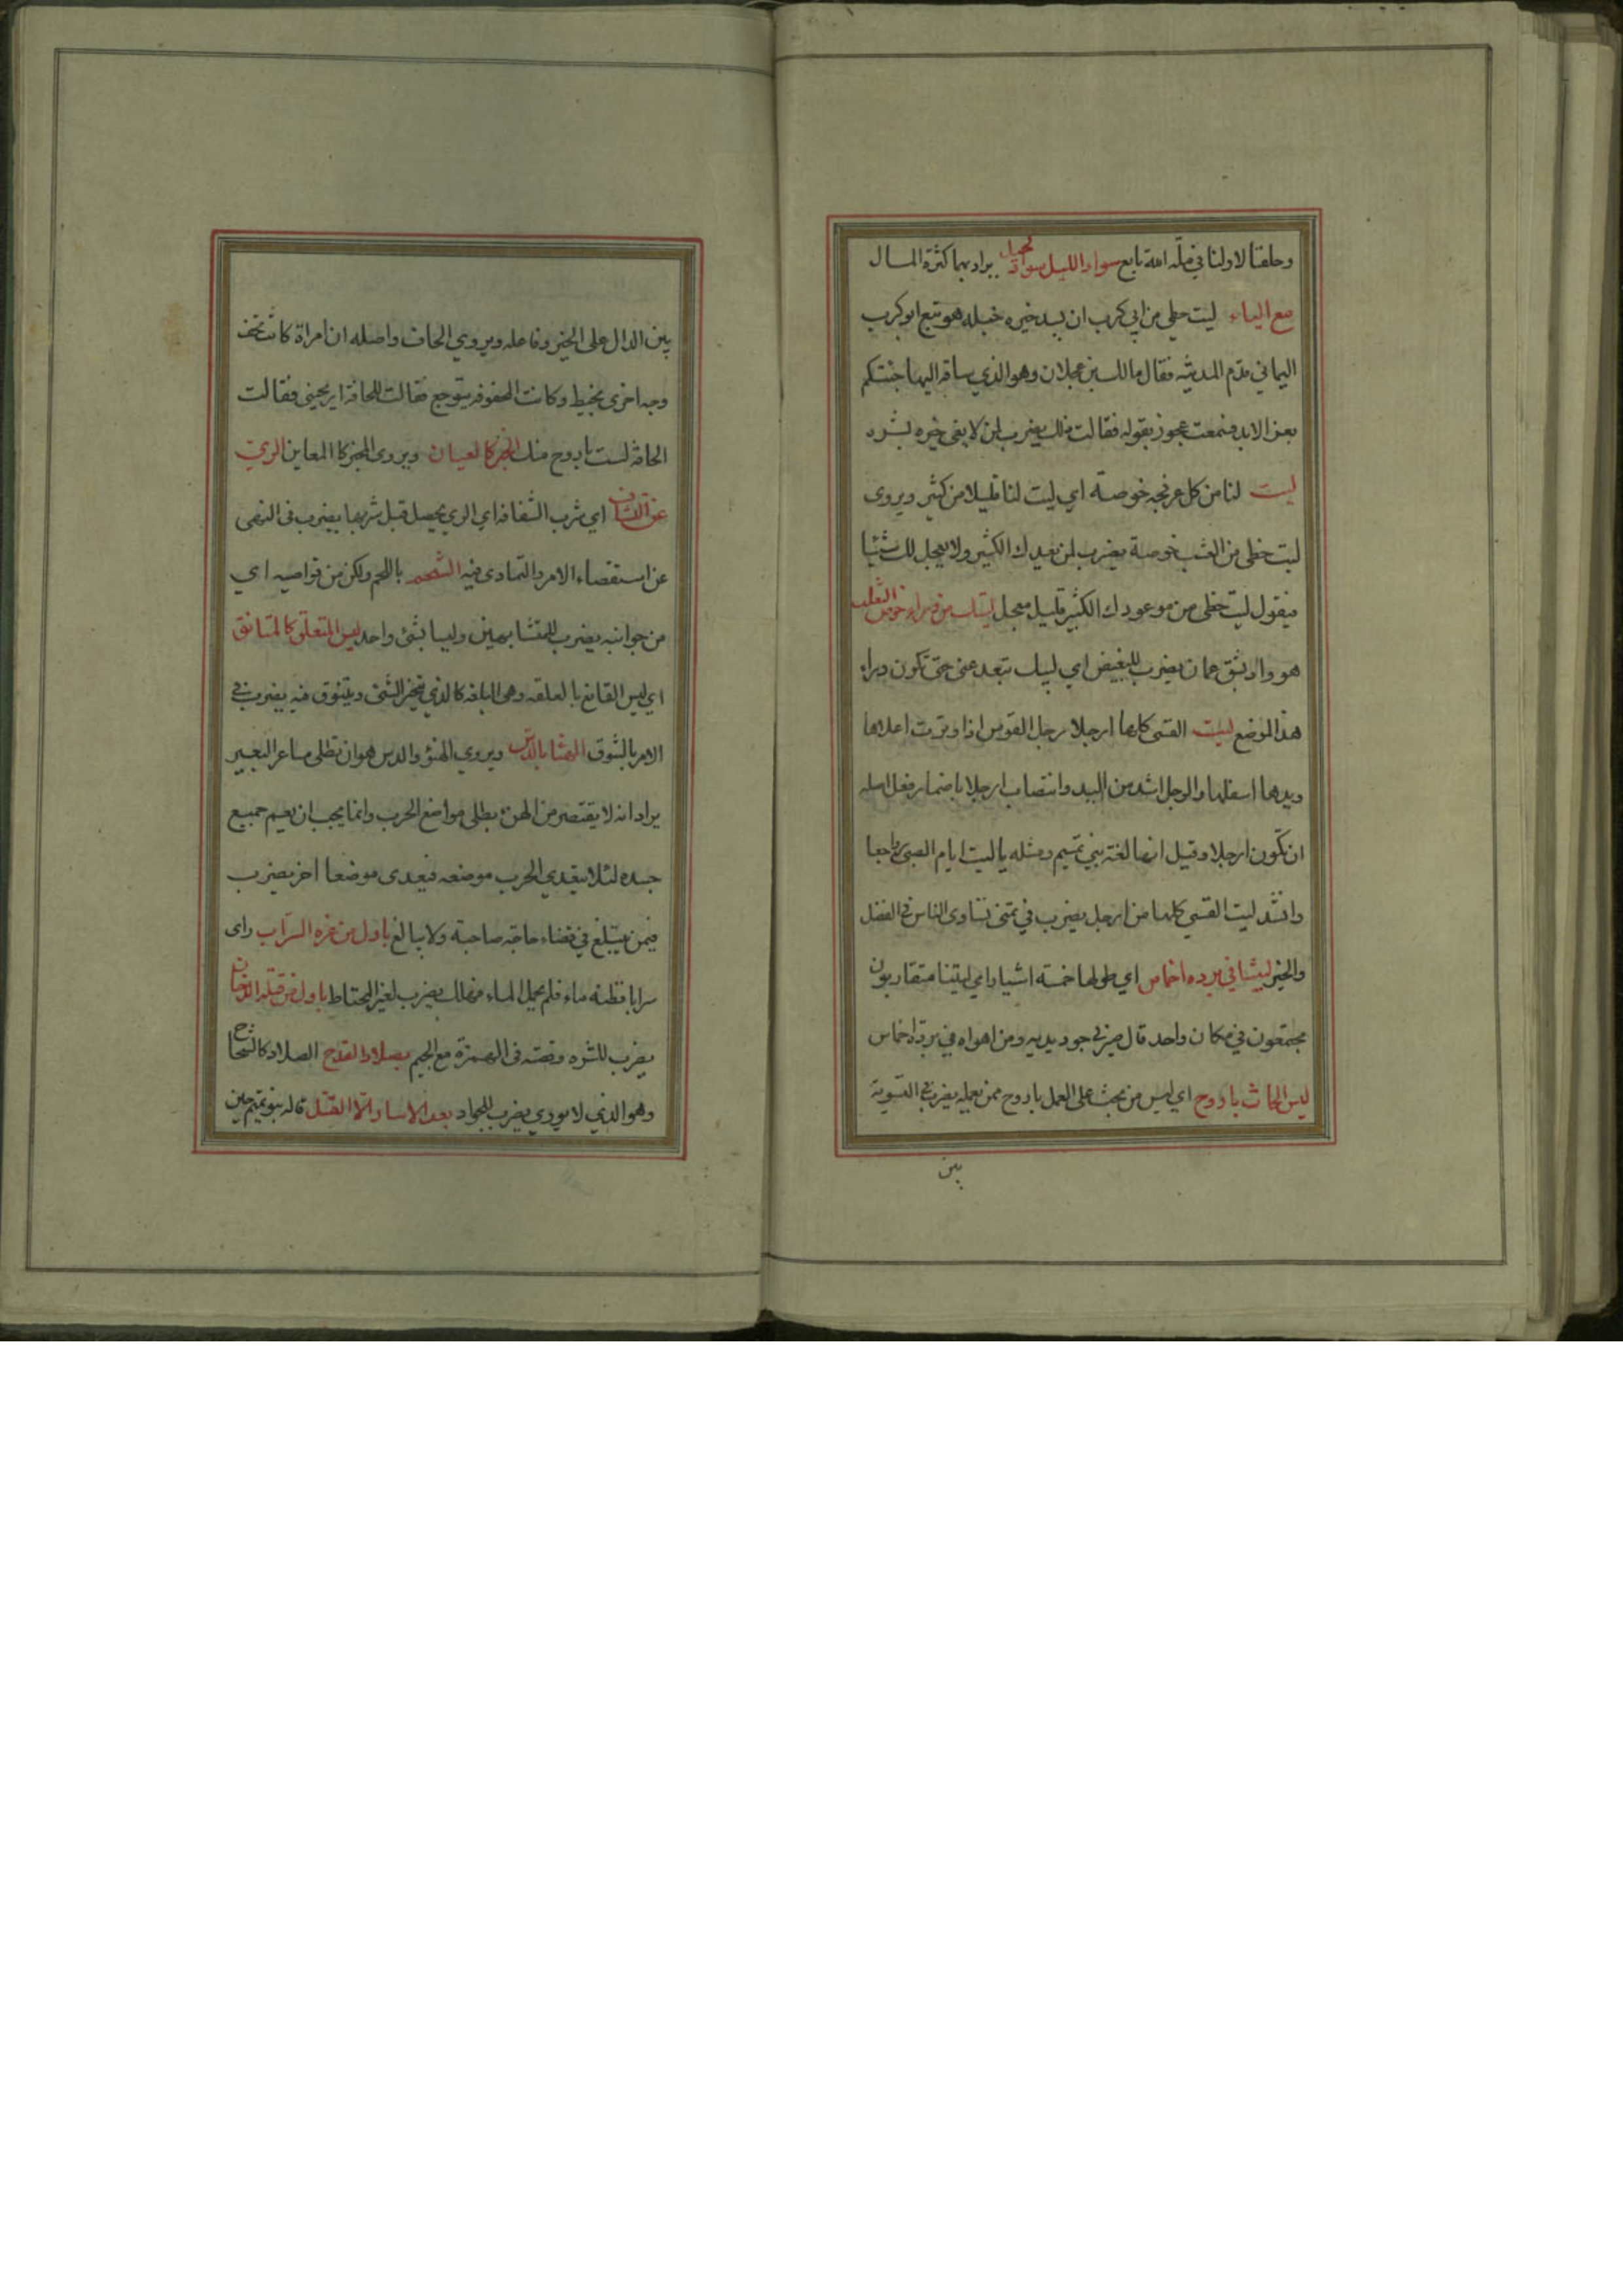 وحلفنا لاولنا في ملّه امة تابع سواد الليل سواد يراد بهما كثرة المال
مع الياء ليت حظي من ابي كرب ان يسد خيره خبله هو تبع ابو كرب
اليماني قدم المدينه فقال مالك بن عجلان وهو الذي ساقه اليها جئتكم
بعز الابد فسمعت عجوز بقوله فقالت ذلك يضرب لمن لا يفى خيره بشره
ليت لنا من كل عرفجه خوصة اي ليت لنا قليلا من كثير ويروى
ليت حظى من العشب خوصة يضرب لمن يعدك الكثير ولا يعجل لك شيئا
فيقول ليت حظى من موعودك الكثير قليل معجل ليتك من وراء حوض الثعلب
هو واد بشق عمان يضرب للبغيض اي ليتك تبعد عنى حتى تكون وراء
هذا الموضع ليت القسى كلها ارجلا رجل القوس اذا وترت اعلاها
ويدها اسفلها والرجل اشد من اليد وانتصاب ارجلا باضمار فعل اصله
ان تكون ارجلا وقيل انها لغة بني تميم ومثله يا ليت ايام الصبى رواجعا
وانشد ليت القسي كلها من ارجل يضرب في تمنى تساوى الناس في الفضل
والخير ليتنا في برده اخماس اي طولها خمسة اشبار اي ليتنا متقاربون
مجتمعون في مكان واحد قال صيرني جود يديه ومن اهواه في بردة اخماس
ليس الحاث باروح اي ليس من يحث على العمل باروح ممن يعمله يضرب في التسوية
بين
بين الدال على الخير وفاعله ويروي الحاف واصله ان امراة كانت تحف
وجه اخرى بخيط وكانت المحفوفه تتوجع فقالت للحافة اريحينى فقالت
الحافة لست باروح منك الخبر كالعيان ويروى المخبر كالمعاين الري
عن التشاف اي شرب الشفافه اي الري يحصل قبل شربها يضرب في النهى
عن استقصاء الامر والتمادى فيه الشحم باللحم ولكن من قواصيه اي
من جوانبه يضرب للمتشابهين وليسا بشئ واحد ليس المتعلق كالمتانق
اي ليس القانع بالعلقه وهى البلغه كالذي يتخير الشئ ويتنوق فيه يضرب في
الامر بالتنوق الهنا بالدس ويروي الهنؤ والدس هو ان تطلى مساعر البعير
يراد انه لا يقتصر من الهنء بطلى مواضع الجرب وانما يجب ان يعم جميع
جسده لئلا يتعدي الجرب موضعه فيعدى موضعا اخر يضرب
فيمن يتبلغ في قضاء حاجة صاحبة ولا يبالغ باول من غره السراب راى
سرابا فظنه ماء فلم يحمل الماء فهلك يضرب لغير المحتاط باول من قتله الدخان
يضرب للشره وقصته في الهمزة مع الجيم بصلاد القدح الصلاد كالشحاح
وهو الذي لا يوري يضرب للجواد بعد الاسار الا القتل قاله بنو تميم حين